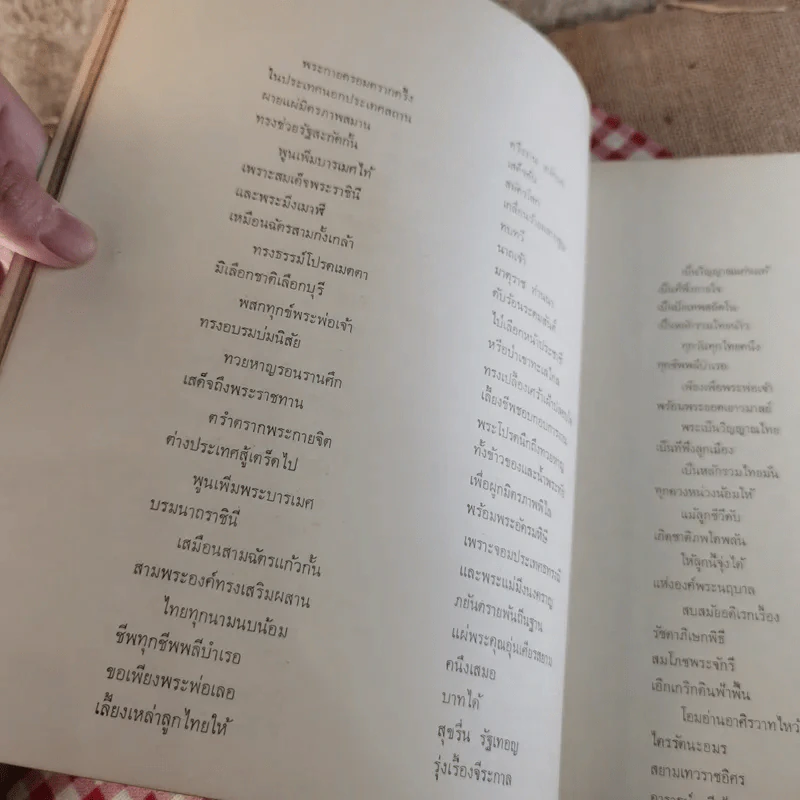 พระกายตรอมตรากตรึง
ในประเทศนอกประเทศสถาน
ผายแผ่มิตรภาพสมาน
ทรงช่วยรัฐสะกัดกั้น
พูนเพิ่มบารเมศไท้
เพราะสมเด็จพระราชินี
และพระมิ่งเมาพี
เหมือนฉัตรสามกั้งเกล้า
ทรงธรรม์โปรดเมตตา
มิเลือกชาติเลือกบุรี
พสกทุกข์พระพ่อเจ้า
ทรงอบรมบ่มนิสัย
ทวยหาญรอนรานศึก
เสด็จถึงพระราชทาน
ตรำตรากพระกายจิต
ต่างประเทศสู้เตร็ดไป
พูนเพิ่มพระบารเมศ
บรมนาถราชินี
เสมือนสามฉัตรแก้วกั้น
สามพระองค์ทรงเสริมผสาน
ไทยทุกนามนบน้อม
ชีพทุกชีพพลีบำเรอ
ขอเพียงพระพ่อเลอ
เลี้ยงเหล่าลูกไทยให้
เสด็จดับ
ทบทวี
นาถเจ้า
มาตุราช ท่านนา
ดับร้อนระดมสันติ์
ไป่เลือกหน้าประชาชี
หรือป่าเขาทะเลไกล
ทรงเปลื้องเศร้า
เลี้ยงชีพชอบ
พระโปรดนึกถึงดวงหาญ
ทั้งข้าวของและน้ำพระทัย
เพื่อผูกมิตรภาพพิไล
พร้อมพระอัครมหิษี
เพราะจอมประเทศ
และพระแม่มิ่งนงคราญ
ภยันตรายพันถิ่นฐาน
แผ่พระคุณอุ่นเดียรสยาม
คนึงเสมอ
บาทได้
สุขรื่น รัฐเทอญ
รุ่งเรืองจีระกาล
เป็นวิญญาณ
เป็นที่พึ่งทางใจ
เป็นหลักรวมไทยนำว
ทุกวันทุกไทยคนึง
ทุกชีพพลีบำเรอ
เพียงเพื่อพระพ่อเจ้า
พร้อมพระยอดเยาวมาลย์
พระเป็นวิญญาณไทย
เป็นที่พึ่งลูกเมือง
เป็นหลักรวมไทยมั่น
ทุกดวงหน่วงน้อมให้
แม้ลูกชีวีดับ
เกิดชาติภพใดพลัน
ให้ลูกนี้จุ่งได้
แห่งองค์พระนฤบาล
สบสมัยอดิเรกเรื่อง
รัชดาภิเษกพิธี
สมโภชพระจักรี
เอิกเกริกดินฟ้าฟื้น
โอมอ่านอาศิรวาทไหว้
ไตรรัตนะอมร
สยามเทวราชอิศร